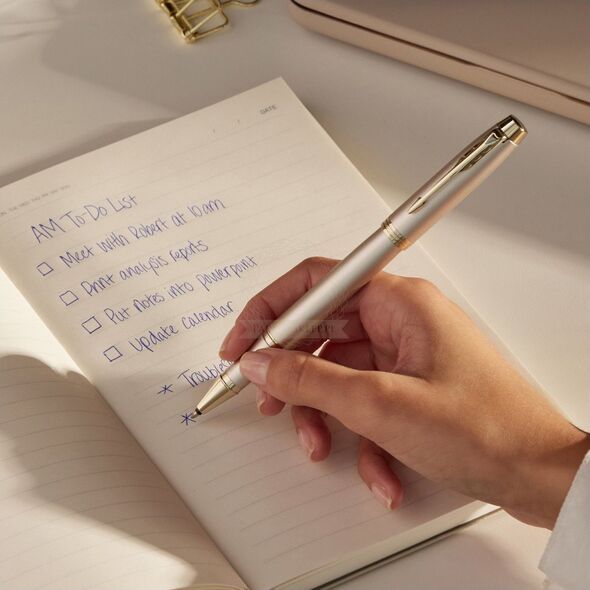 DATE
AM To-Do List
Meet with Robert at 10am
Print analysis reports
Put notes into powerpoint
Update calendar
* 
*